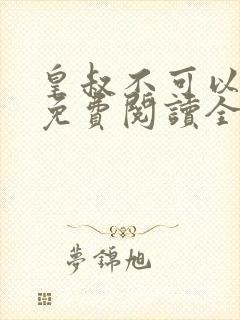 皇叔不可以
免費閱讀全
夢錦旭